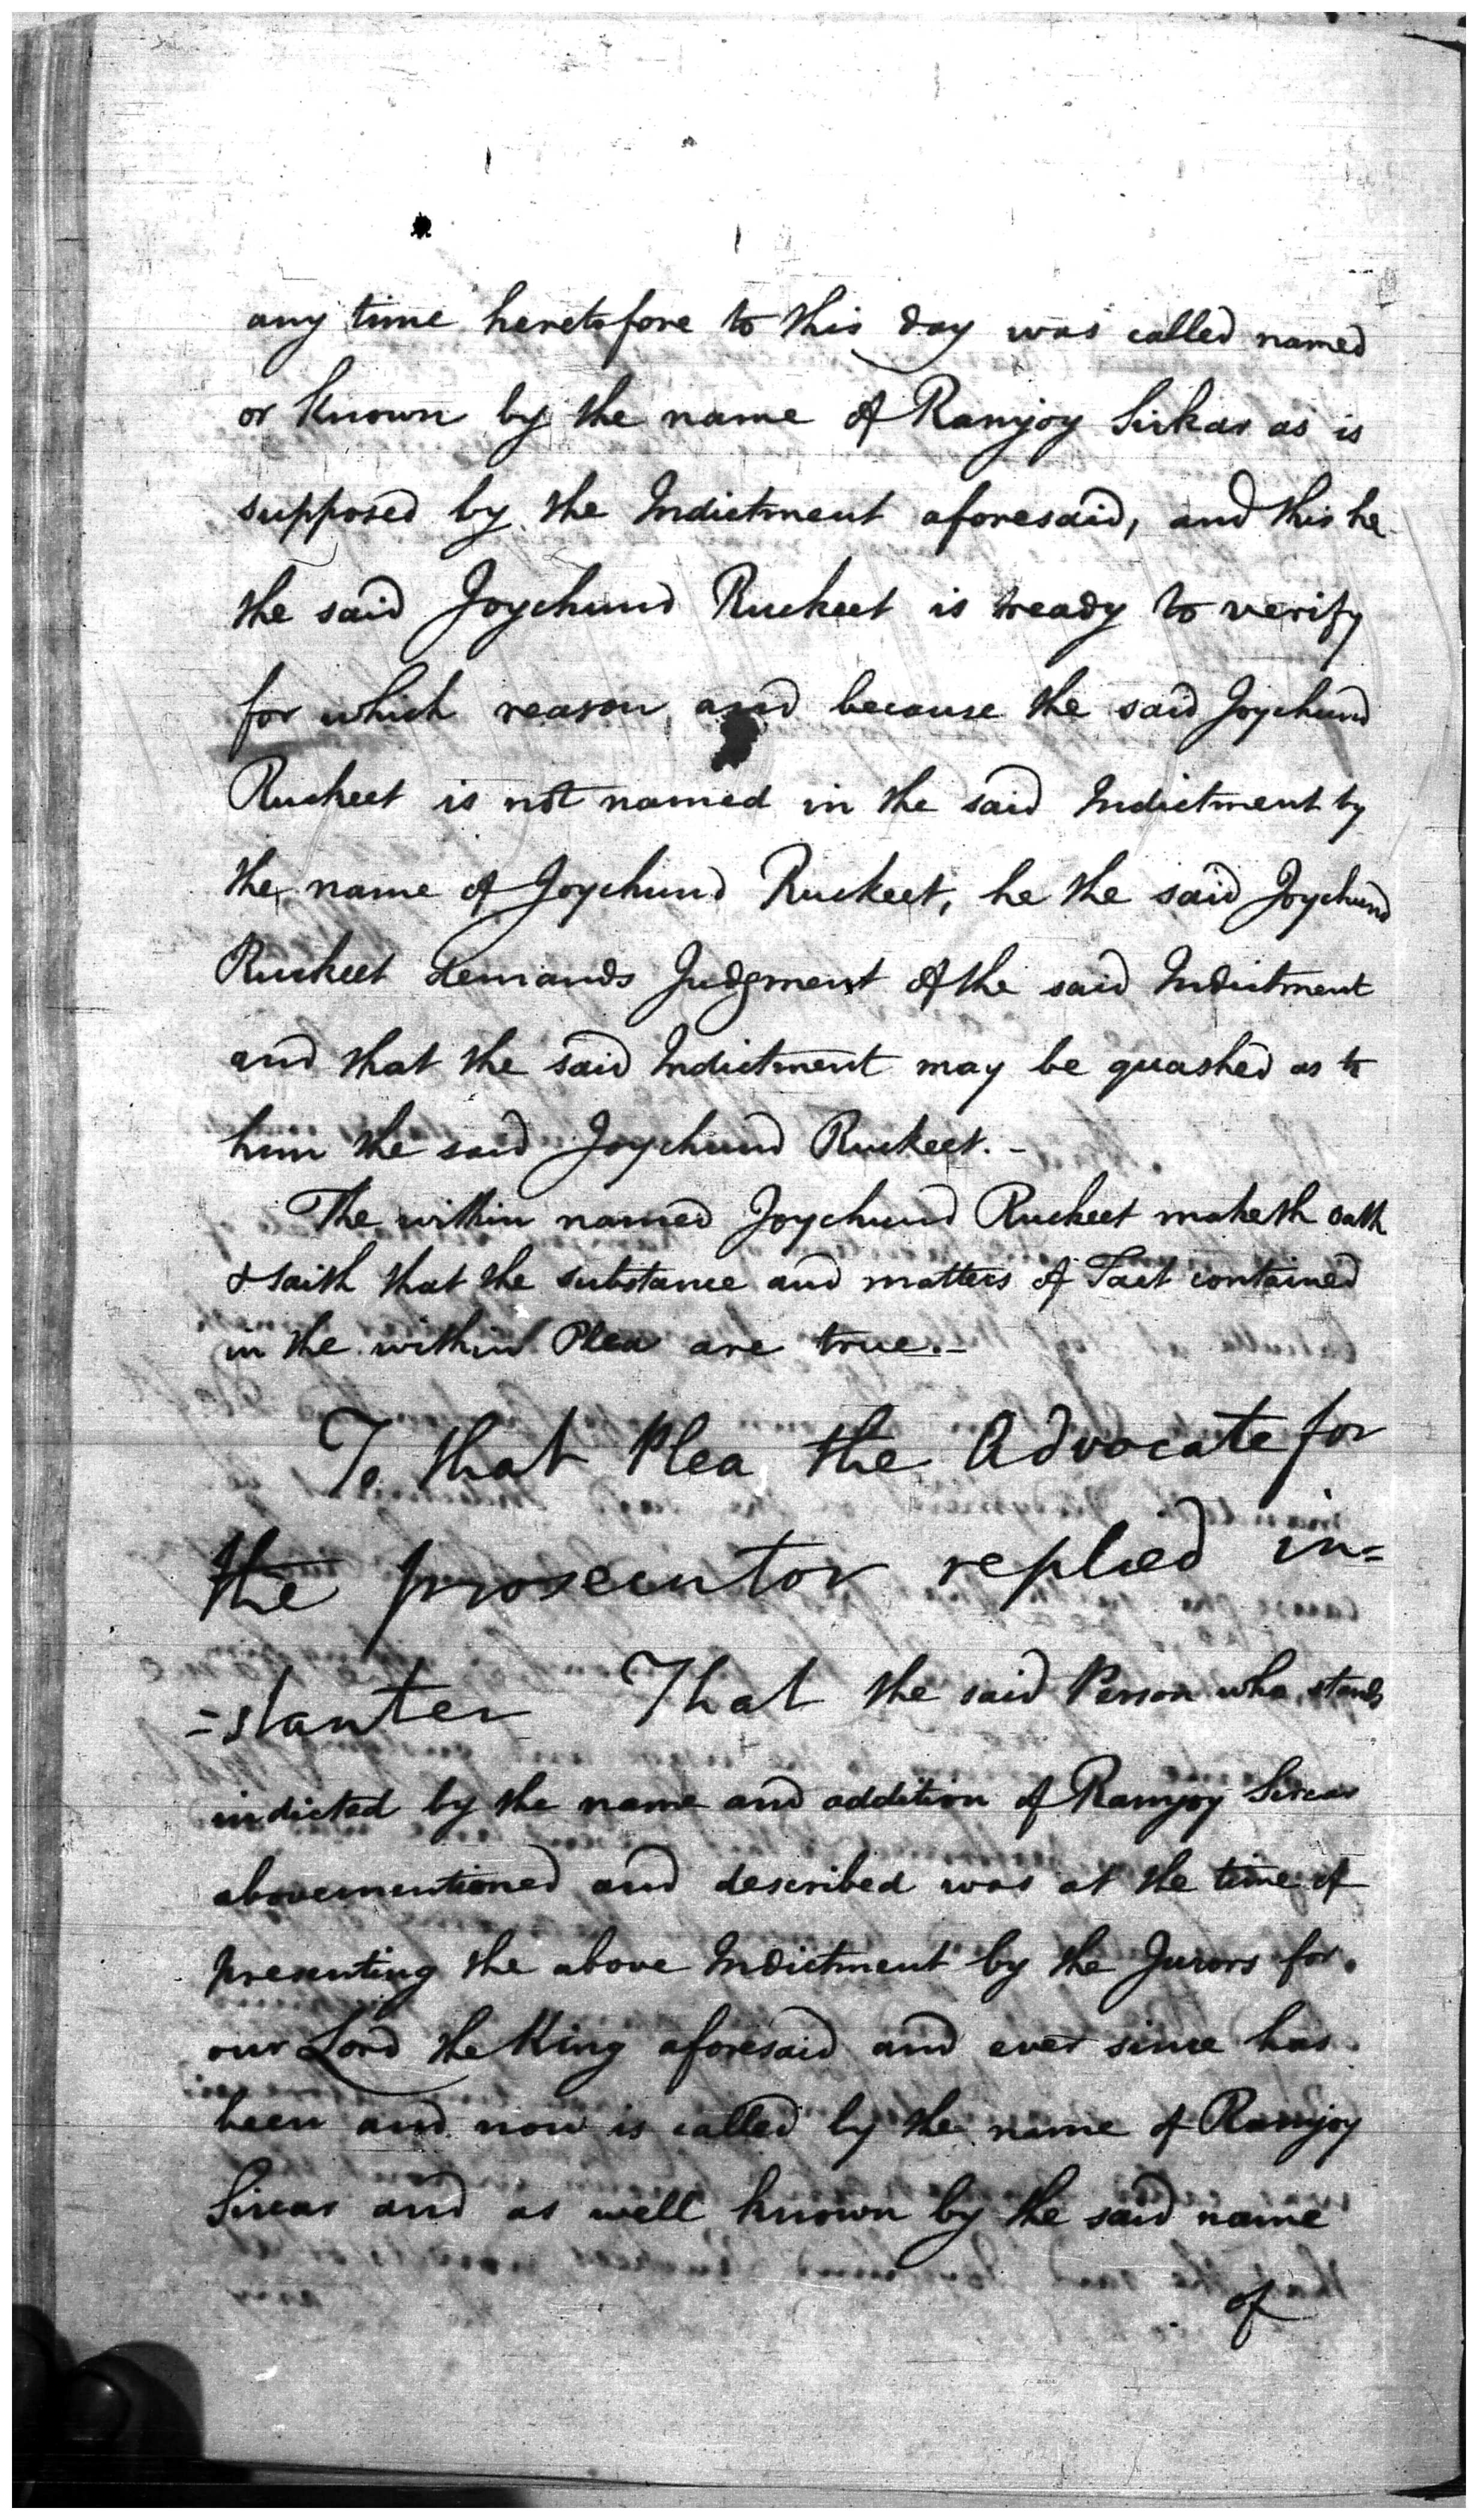 any time heretofore to this day was called named
or known by the name of Ramjoy Sirkar as is
supposed by the Indictment aforesaid, and this he
the said Joychund Ruckeet is ready to verify
for which reason and because the said Joychund
Ruckeet is not named in the said Indictment by
the name of Joychund Ruckeet, he the said Joychund
Ruckeet demands Judgment of the said Indictment
and that the said Indictment may be quashed as to
him the said Joychund Ruckeet. -
The within named Joychund Ruckeet maketh oath
& saith that the substance and matters of Fact contained
in the within Plea are true. -
To that Plea the Advocate for
the prosecutor replied in=
=stanter That the said Person who stands
indicted by the name and addition of Ramjoy Sircar
abovementioned and described was at the time of
presenting the above Indictment by the Jurors for
our Lord the King aforesaid and ever since has
been and now is called by the name of Ramjoy
Sircar and as well known by the said name
of